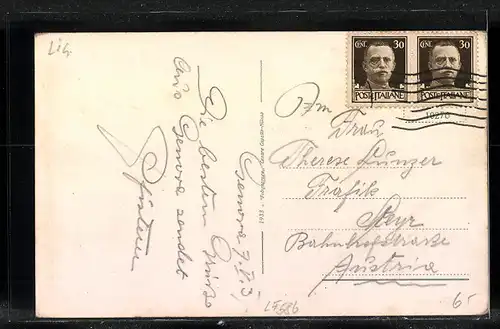 Lig.
CENT. 30
POSTE ITALIANE
CENT. 30
POSTE ITALIANE
Genova 9.
Die besten Grüße
aus Genova sendet
An
Frau
Therese Lunzer
Trafik
Steyr
Bahnhofstraße
Austria
6.-